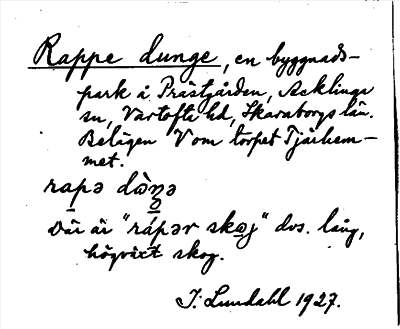 Rappe dunge, en byggnads-
park å Prästgården, Acklinga
sn, Vartofta hd, Skaraborgs län.
Belägen V om torpet Tjärhem-
met.
rapə
Där är "rápər skoj" dvs. lång,
högväxt skog.
J. Lundahl 1927.